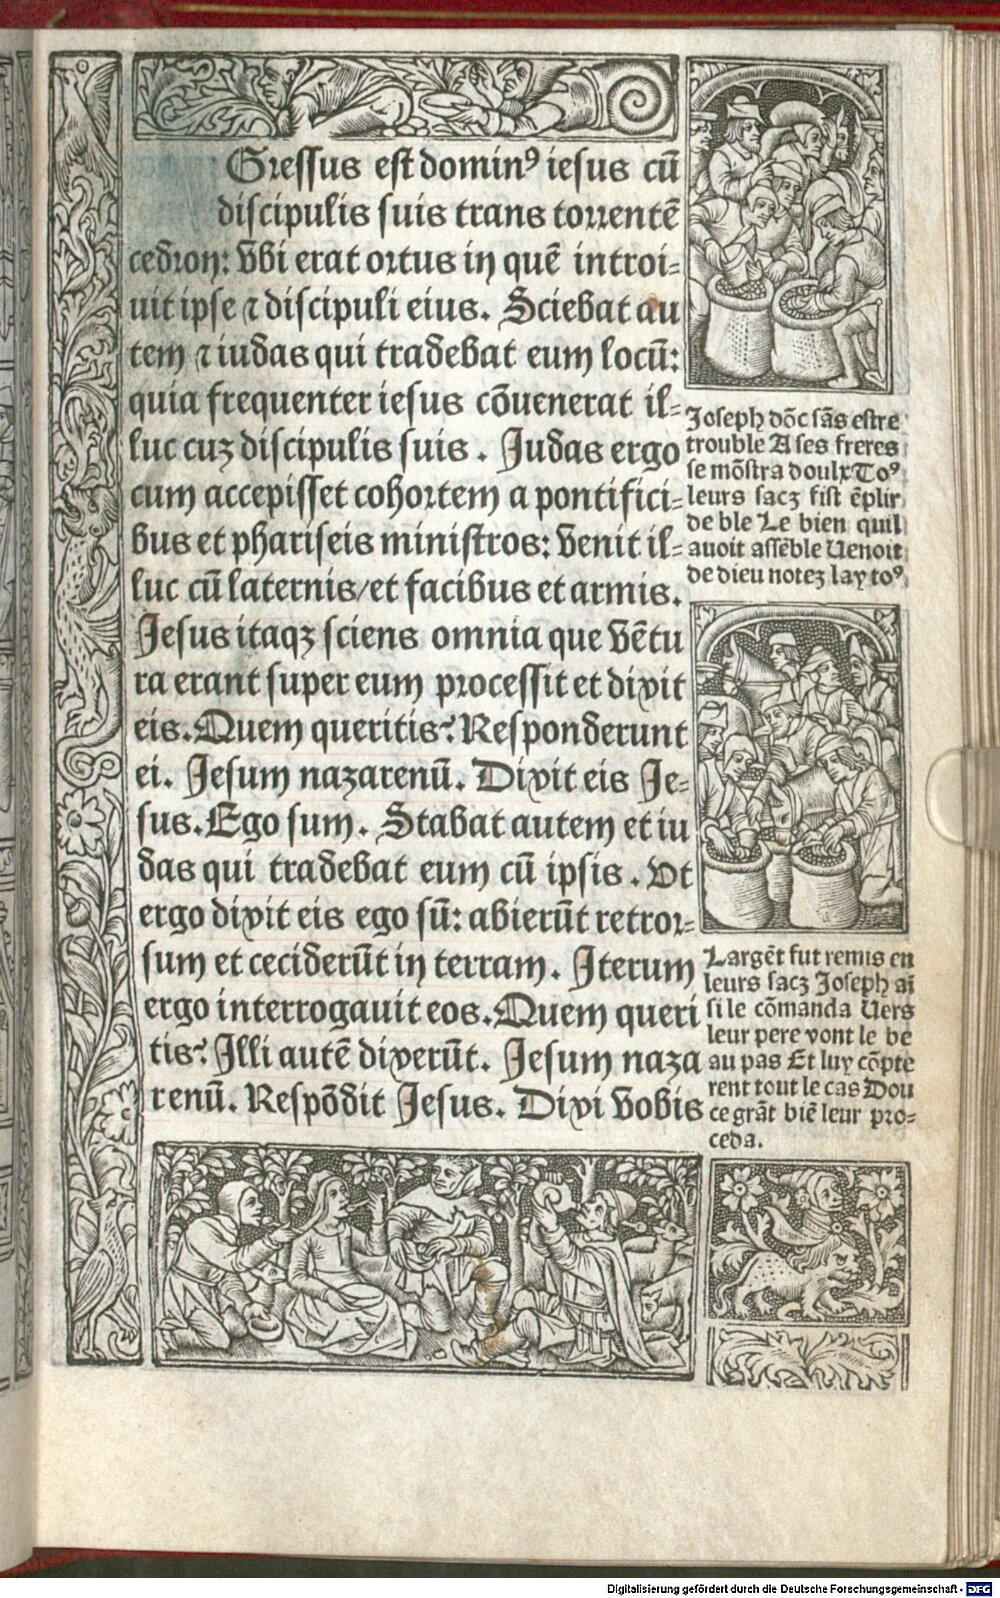 Gressus est dominꝰ iesus cū
discipulis suis trans torrentē
cedron: vbi erat ortus in quē introi=
uit ipse ⁊ discipuli eius. Sciebat au
tem ⁊ iudas qui tradebat eum locū:
quia frequenter iesus cōuenerat il=
luc cuꝫ discipulis suis. Judas ergo
cum accepisset cohortem a pontifici=
bus et phariseis ministros: venit il=
luc cū laternis/et facibus et armis.
Jesus itaqꝫ sciens omnia que vētu
ra erant super eum processit et dixit
eis. Quem queritis? Responderunt
ei. Jesum nazarenū. Dixit eis Je=
sus. Ego sum. Stabat autem et iu
das qui tradebat eum cū ipsis. Vt
ergo dixit eis ego sū: abierūt retror=
sum et ceciderūt in terram. Iterum
ergo interrogauit eos. Quem queri
tis? Illi autē dixerūt. Jesum naza
renū. Respōdit Jesus. Dixi vobis
Joseph dōc sās estre
trouble A ses freres
se mōstra doulx Toꝰ
leurs sacz fist ēplir
de ble Le bien quil
auoit assēble Uenoit
de dieu notez lay toꝰ
Largēt fut remis en
leurs sacz Joseph aī
si le cōmanda Uers
leur pere vont le be
au pas Et luy cōpte
rent tout le cas Dou
ce grāt biē leur pro=
ceda.
Digitalisierung gefördert durch die Deutsche Forschungsgemeinschaft - DFG